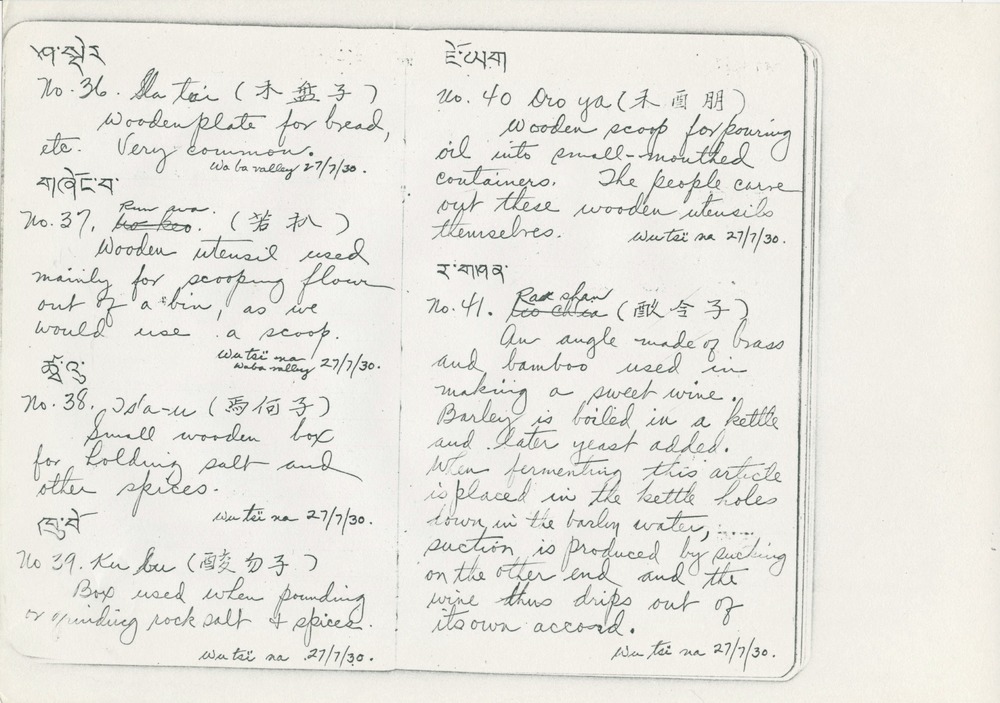 No. 36. Sha tai (木盤子)
Wooden plate for bread,
etc. Very common.
Wa ba valley 27/7/30.
No. 37. Run wa.
Wooden utensil used
mainly for scooping flour
out of a bin, as we
would use a scoop.
Wu tsï na
Waba valley 27/7/30.
No. 38. Ts'a-u
Small wooden box
for holding salt and
other spices.
Wu tsï na 27/7/30.
No 39. Ku bu
Box used when pounding
or grinding rock salt & spices.
Wu tsï na 27/7/30.
No. 40 Dro ya
Wooden scoop for pouring
oil into small-mouthed
containers. The people carve
out these wooden utensils
themselves. Wu tsï na 27/7/30.
ར་གཤན་
No. 41. Rax shan
An angle made of brass
and bamboo used in
making a sweet wine.
Barley is boiled in a kettle
and later yeast added.
When fermenting this article
is placed in the kettle holes
down in the barley water,
suction is produced by sucking
on the other end and the
wine thus drips out of
its own accord.
Wu tsï na 27/7/30.